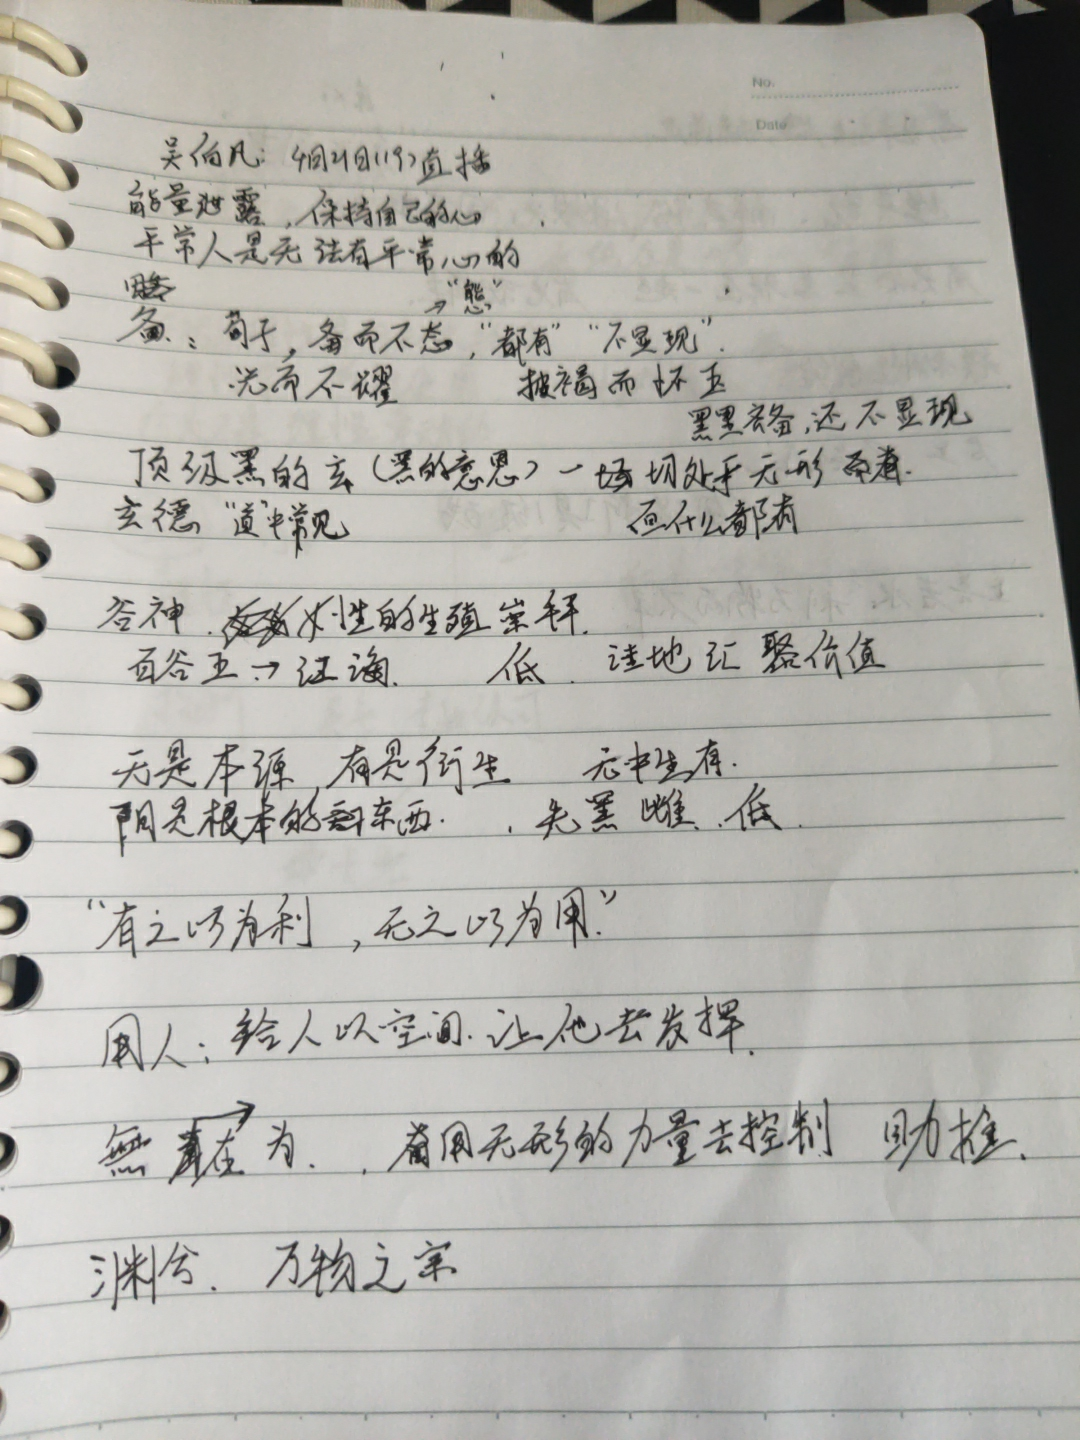 No.
Date
吴伯凡：4月21日(19)直播
能量泄露，保持自己的心
平常人是无法有平常心的
→“態”
备：荀子，备而不态，“都有”“不显现”.
光而不耀 披褐而怀玉
还不显现
顶级黑的玄（黑的意思）一切处于无形
玄德 “道”中常见 但什么都有
谷神 女性的生殖崇拜.
百谷王→江海. 低. 洼地汇聚价值
无是本源 有是衍生 无中生有.
阴是根本的东西. 黑 雌. 低.
“有之以为利，无之以为用.”
用人：给人以空间.让他去发挥.
無 在为. 用无形的力量去控制 助推.
渊兮. 万物之宗